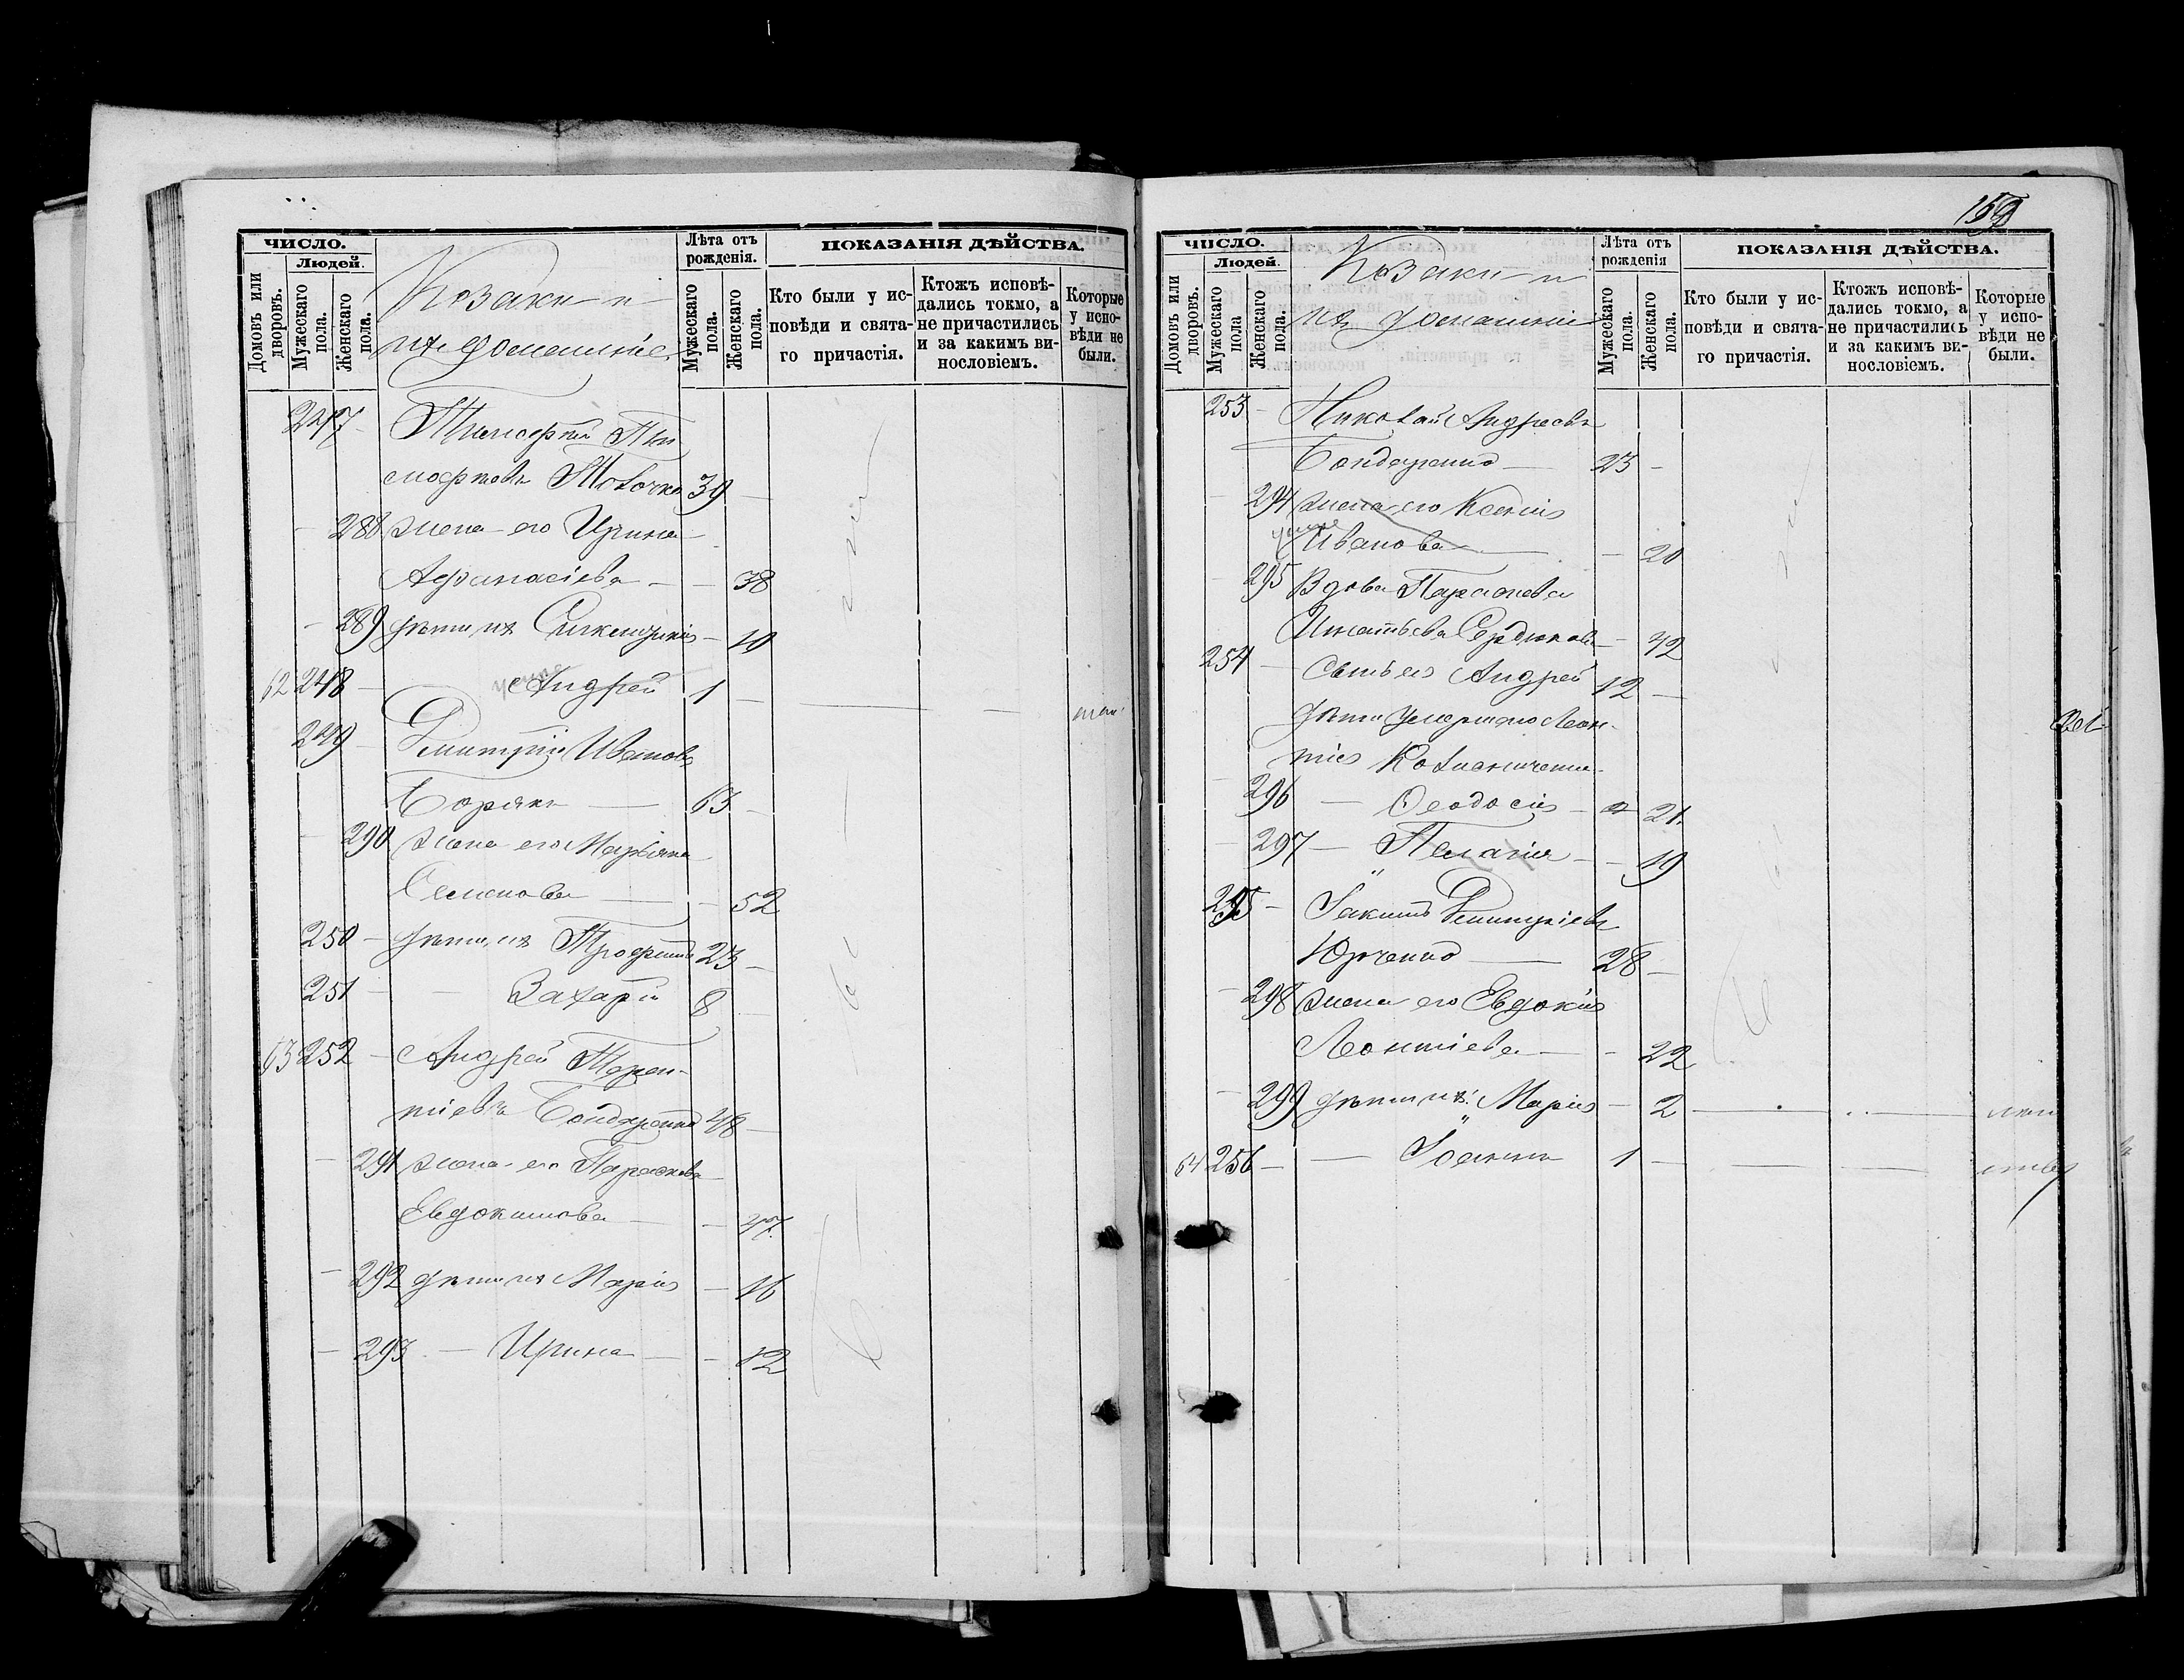 ЧИСЛО.
Людей.
Домовъ или дворовъ.
Мужескаго пола.
Женскаго пола.
Козаки и
ихъ домашніе
Лѣта отъ рожденія.
Мужескаго пола.
Женскаго пола.
ПОКАЗАНІЯ ДѢЙСТВА.
Кто были у ис-
повѣди и свята-
го причастія.
Ктожъ исповѣ-
дались токмо, а
не причастились
и за какимъ ви-
нословіемъ.
Которые
у испо-
вѣди не
были.
247 - Тимофей Ти
мофеевъ 39 -
- 288 жена его Ирина
Афанасіева - - 38
- 289 дѣти ихъ - 10
62 248 - Андрей 1 -
249 - Димитрій Ивановъ
Борякъ - 63 -
- 290 жена его Маріанна
Семенова - - 52
250 - дѣти ихъ Трофимъ 23 -
251 - - Захарій 8 -
63 252 - Андрей Терен-
тіевъ Бондаренко 48 -
- 291 жена его Параскева
Евдокимова - - 47
- 292 дѣти ихъ Марія - 16
- 293 - Ирина - - 12
159
ЧИСЛО.
Людей.
Домовъ или дворовъ.
Мужескаго пола
Женскаго пола.
Козаки и
ихъ домашніе
Лѣта отъ рожденія
Мужескаго пола.
Женскаго пола.
ПОКАЗАНІЯ ДѢЙСТВА.
Кто были у ис-
повѣди и свята-
го причастія.
Ктожъ исповѣ-
дались токмо, а
не причастились
и за какимъ ви-
нословіемъ.
Которые
у испо-
вѣди не
были.
253 - Николай Андреевъ
Бондаренко - 23 -
- 294 жена его Ксенія
Иванова - - 20
- 295 Вдова Параскева
Игнатьева Сердюкова - 42
254 - Сынъ ея Андрей 12 -
Дѣти умершаго Леон-
тія
- 296 - Ѳеодосія - 21
- 297 - Пелагія - - 19
255 - Іакимъ Димитріевъ
Юрченко - 28 -
- 298 жена его Евдокія
Леонтіева - - 22
- 299 дѣти ихъ: Марія - 2
64 256 - - Іоаннъ 1 -